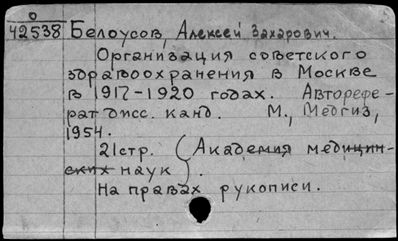 0
42538 Белоусов, Алексей Захарович.
Организация советского
здравоохранения в Москве
в 1917-1920 годах. Авторефе-
рат дисс. канд. М., Медгиз,
1954.
21стр. (Академия медицин-
ских наук).
На правах рукописи.